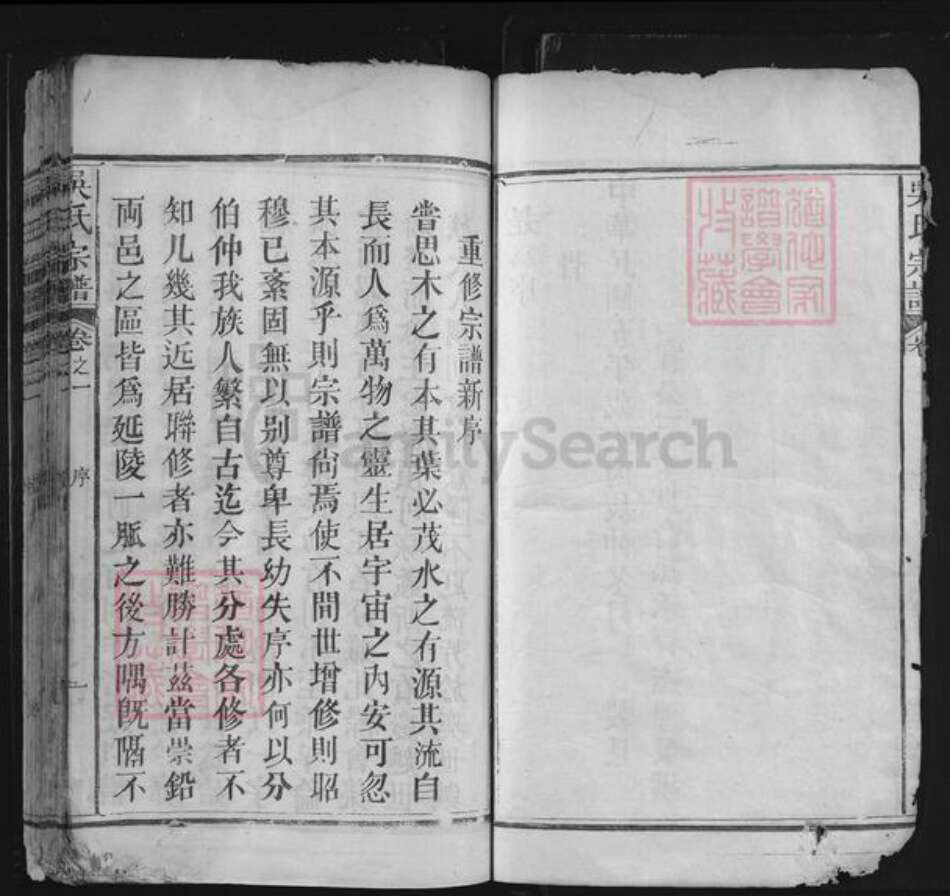 吳氏宗譜
重修宗譜新序
嘗思木之有本其葉必茂水之有源其流自
長而人爲萬物之靈生居宇宙之內安可忽
其本源乎則宗譜尚焉使不間世增修則昭
穆已紊固無以别尊卑長幼失序亦何以分
伯仲我族人繁自古迄今其分處各修者不
知凡幾其近居聯修者亦難勝計茲當崇鉛
両邑之區皆爲延陵一脈之後方隅旣隔不
吳氏宗譜 卷之一 序 一
FamilySearch